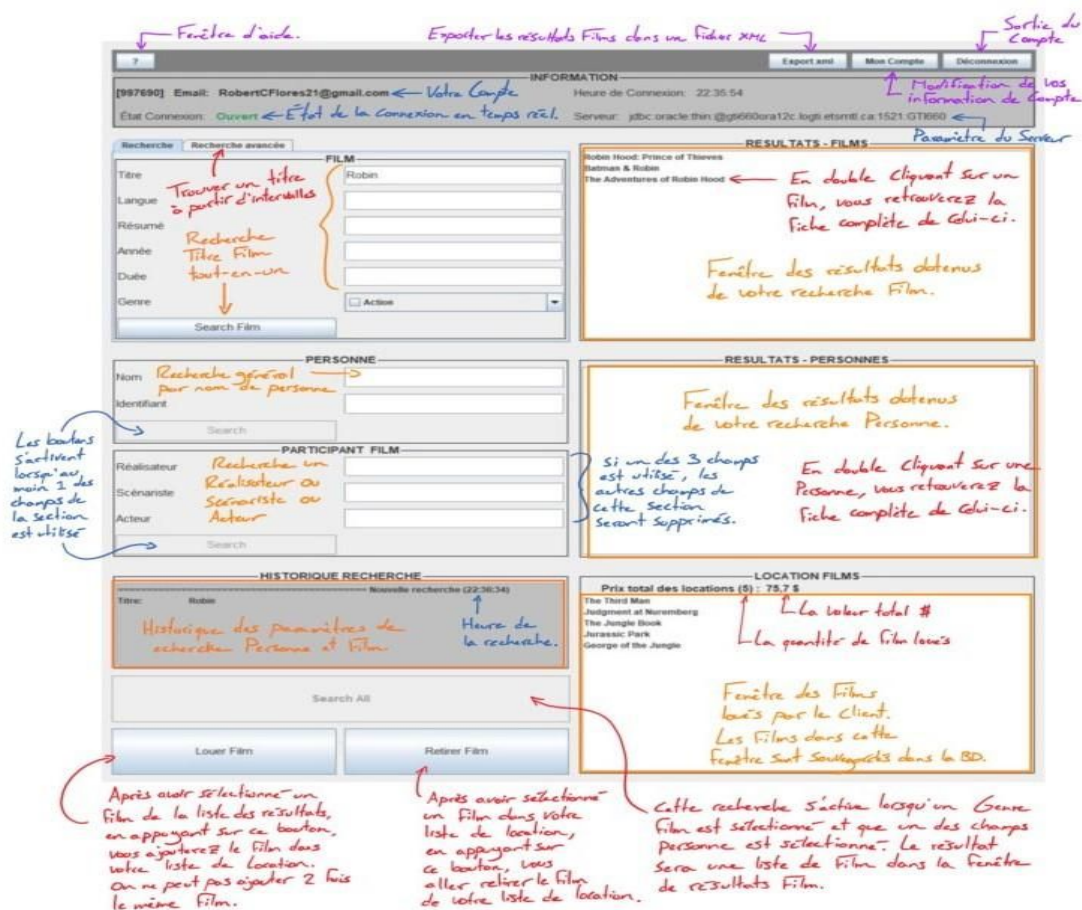 Fenêtre d'aide.
Exporter les résultats Films dans un Fichier XML
Sortie du
Compte
?
Export xml
Mon Compte
Déconnexion
INFORMATION
[997690] Email: RobertCFlores21@gmail.com
Votre Compte
Heure de Connexion: 22:35:54
Modification de vos
information de Compte
État Connexion: Ouvert
État de la connexion en temps réel.
Serveur: jdbc:oracle:thin:@gti660ora12c.logti.etsmtl.ca:1521:GTI660
Paramètre du Serveur
Recherche
Recherche avancée
FILM
Titre
Robin
Langue
Résumé
Année
Duée
Genre
Action
Search Film
Trouver un titre
à partir d'intervalles
Recherche
Titre Film
tout-en-un
RESULTATS - FILMS
Robin Hood: Prince of Thieves
Batman & Robin
The Adventures of Robin Hood
En double Cliquant sur un
Film, vous retrouverez la
fiche complète de Celui-ci.
Fenêtre des résultats obtenus
de votre recherche Film.
PERSONNE
Nom
Recherche général
par nom de personne
Identifiant
Search
Les boutons
s'activent
lorsqu'au
moin 1 des
champs de
la section
est utilisé
PARTICIPANT FILM
Réalisateur
Scénariste
Acteur
Search
Recherche un
Réalisateur ou
Scénariste ou
Acteur
Si un des 3 champs
est utilisé, les
autres champs de
cette section
seront supprimés.
RESULTATS - PERSONNES
Fenêtre des résultats obtenus
de votre recherche Personne.
En double Cliquant sur une
Personne, vous retrouverez la
fiche complète de Celui-ci.
HISTORIQUE RECHERCHE
Nouvelle recherche (22:36:34)
Titre: Robin
Historique des paramètres de
echerche Personne et Film.
Heure de
la recherche.
Search All
Louer Film
Retirer Film
LOCATION FILMS
Prix total des locations (5) : 75,7 $
The Third Man
Judgment at Nuremberg
The Jungle Book
Jurassic Park
George of the Jungle
La valeur total $
La quantité de Film loués
Fenêtre des Films
loués par le Client.
Les Films dans cette
Fenêtre sont sauvegardés dans la BD.
Après avoir sélectionné un
film de la liste des résultats,
en appuyant sur ce bouton,
vous ajouterez le film dans
votre liste de Location.
On ne peut pas ajouter 2 fois
le même Film.
Après avoir sélectionné
un Film dans votre
liste de location,
en appuyant sur
ce bouton, vous
aller retirer le film
de votre liste de location.
Cette recherche s'active lorsqu'un Genre
Film est sélectionné et que un des champs
Personne est sélectionné. Le résultat
sera une liste de Film dans la Fenêtre
de résultats Film.